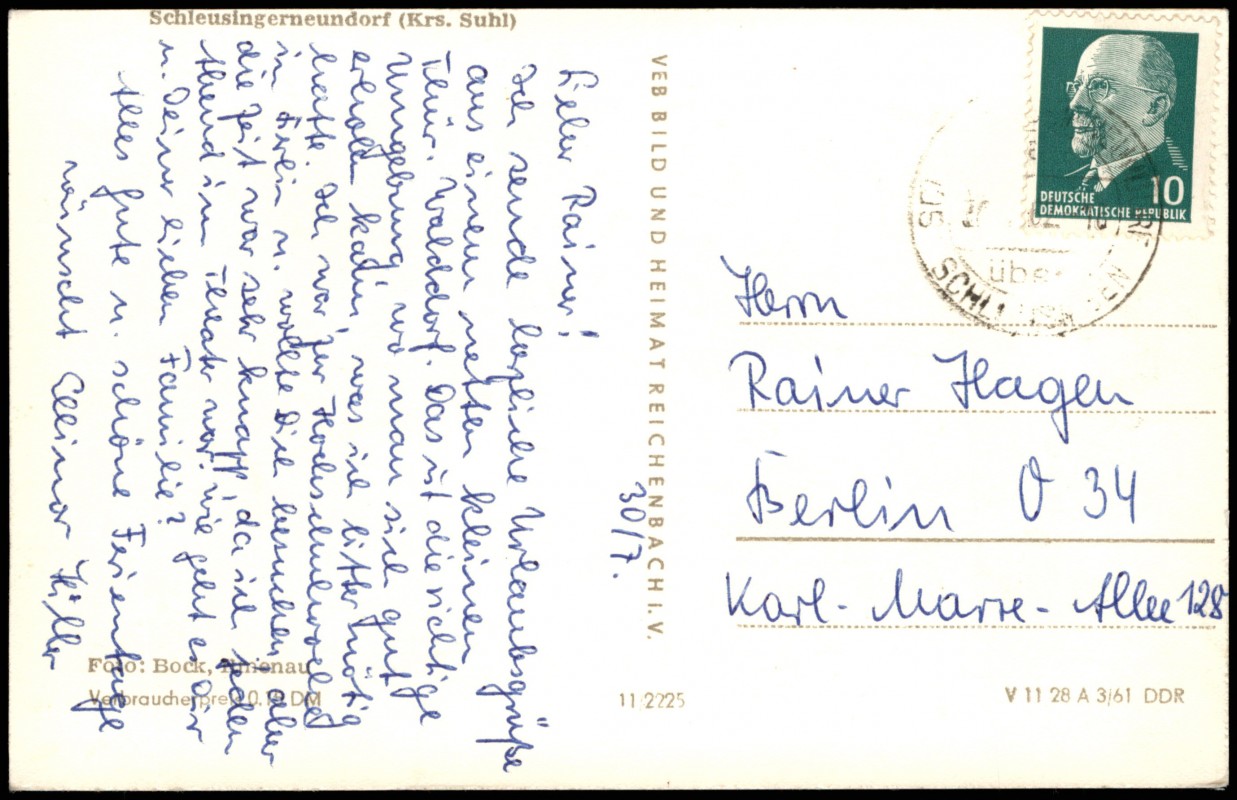 Schleusingerneundorf (Krs. Suhl)
30/7.
Lieber Rainer!
Ich sende herzliche Urlaubsgrüße
aus einem netten kleinen
Thür. Walddorf. Das ist die richtige
Umgebung, wo man sich gut
erholen kann, was ich bitter nötig
hatte. Ich war zur Hochschulwoche
in Berlin u. wollte Dich besuchen, aber
die Zeit war sehr knapp, da ich jeden
Abend im Theater war. Wie geht es Dir
u. Deiner lieben Familie?
Alles Gute u. schöne Ferientage
wünscht Ellinor
Foto: Bock, Ilmenau
Verbraucherpreis 0.19 DM
VEB BILD UND HEIMAT REICHENBACH I. V.
11/2225
DEUTSCHE
DEMOKRATISCHE REPUBLIK
10
über
Herrn
Rainer Hagen
Berlin O 34
Karl-Marx-Allee 128
V 11 28 A 3/61 DDR